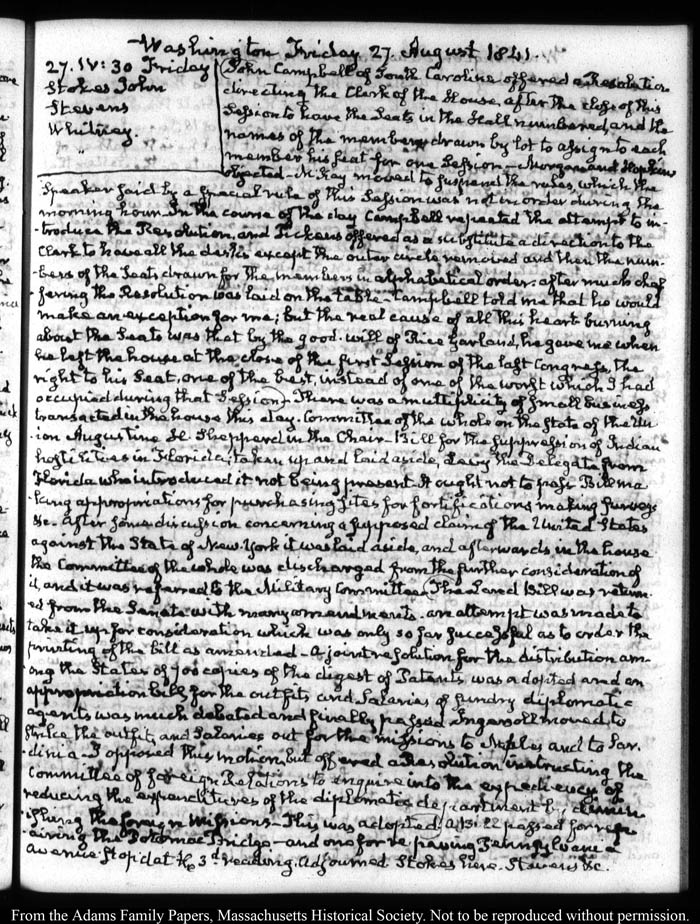 Washington Friday 27. August 1841.
27. IV: 30 Friday
Stokes John
Stevens
Whitney.
"
John Campbell of South Carolina offered a Resolution
directing the Clerk of the House, after the close of this
Session to have the Seats in the Hall numbered and the
names of the members drawn by lot to assign to each
member his seat for one Session — Morgan and Hopkins
objected — McKay moved to suspend the rules, which the
Speaker said by a special rule of this Session was not in order during the
morning hour. In the course of the day Campbell repeated the attempt to in-
-troduce the Resolution, and Pickens offered as a substitute a direction to the
Clerk to have all the desks except the outer circle removed and then the num-
-bers of the Seats drawn for the members in alphabetical order: after much chaf
-fering the Resolution was laid on the table — Campbell told me that he would
make an exception for me; but the real cause of all this heart burning
about the Seats was that by the good-will of Rice Garland, he gave me when
he left the house at the close of the first Session of the last Congress, the
right to his Seat, one of the best, instead of one of the worst which I had
occupied during that Session — There was a multiplicity of small business
transacted in the house this day. Committee of the whole on the State of the Un-
-ion Augustine H. Shepperd in the Chair — Bill for the suppression of Indian
hostilities in Florida; taken up and laid aside, Levy the Delegate from
Florida who introduced it not being present. It ought not to pass. Bill ma
-king appropriations for purchasing sites for fortifications making surveys
&c. After some discussion concerning a supposed claim of the United States
against the State of New-York it was laid aside, and afterwards in the house
the Committee of the whole was discharged from the further consideration of
it, and it was referred to the Military Committee. The Land Bill was return-
-ed from the Senate with many amendments. an attempt was made to
take it up for consideration which was only so far successful as to order the
printing of the bill as amended — A joint resolution for the distribution am-
-ong the States of 700 copies of the digest of Patents was adopted and an
appropriation bill for the outfits and Salaries of sundry diplomatic
agents was much debated and finally passed. Ingersoll moved to
strike the outfits and Salaries out for the missions to Naples and to Sar-
-dinia — I opposed this motion, but offered a Resolution instructing the
Committee of foreign Relations to enquire into the expediency of
reducing the expenditures of the diplomatic department by dimin-
-ishing the foreign missions — This was adopted. A Bill passed for rep
-airing the Potomac Bridge — and one for re paving Pennsylvania
Avenue stop'd at the 3d reading. Adjourned Stokes here. Stevens &c.
From the Adams Family Papers, Massachusetts Historical Society. Not to be reproduced without permission.